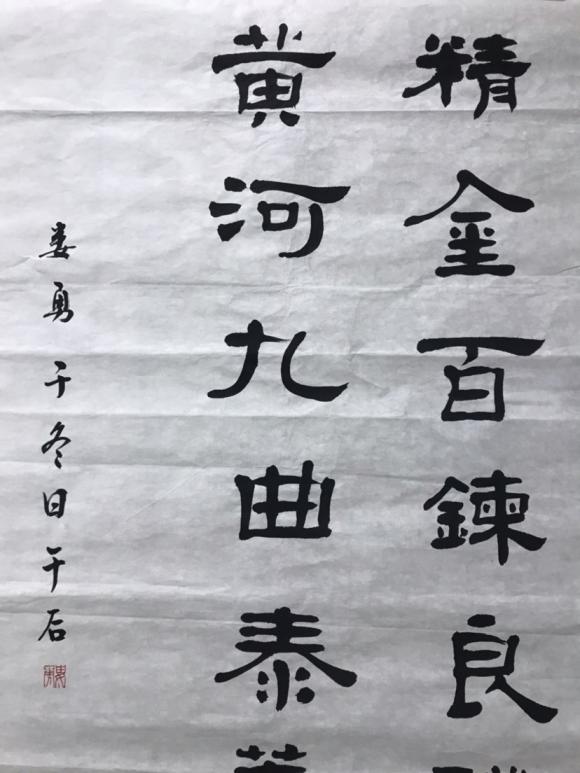 精金百鍊良
黄河九曲泰
娄勇于冬日于石